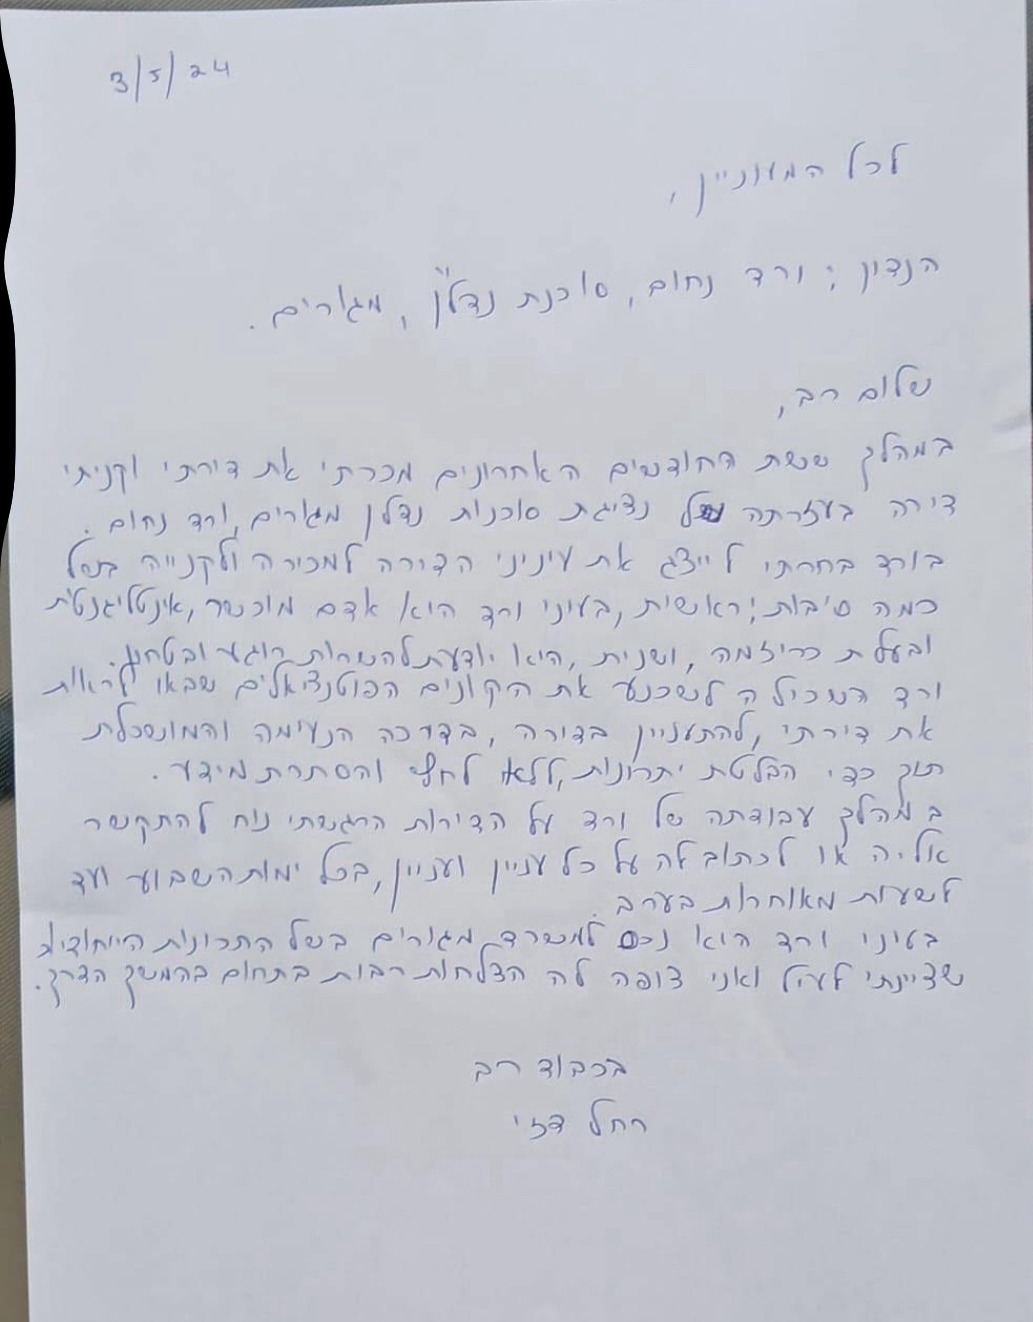 3/5/24
לכל המעוניין,
הנדון: ורד נחום, סוכנת נדל"ן, מגורים.
שלום רב,
במהלך ששת החודשים האחרונים מכרתי את דירתי וקניתי
דירה בעזרתה של נציגת סוכנות נדלן מגורים, ורד נחום.
בורד בחרתי לייצג את עיניני הדירה למכירה ולקנייה בשל
כמה סיבות; ראשית, בעיני ורד היא אדם מוכשר, אינטליגנטית
ובעלת כריזמה, ושנית, היא יודעת להשרות רוגע ובטחון.
ורד השכילה לשכנע את הקונים הפוטנציאלים שבאו לראות
את דירתי, להתעניין בדירה, בדרכה הנעימה והמושכלת
תוך כדי הבלטת יתרונות, ללא לחץ והסתרת מידע.
במהלך עבודתה של ורד על הדירות הרגשתי נוח להתקשר
אליה או לכתוב לה על כל עניין ועניין, בכל ימות השבוע ועד
לשעות מאוחרות בערב.
בעיני ורד היא נכס למשרד מגורים בשל התכונות הייחודיות
שציינתי לעיל ואני צופה לה הצלחות רבות בתחום בהמשך הדרך.
בכבוד רב
רחל דזי